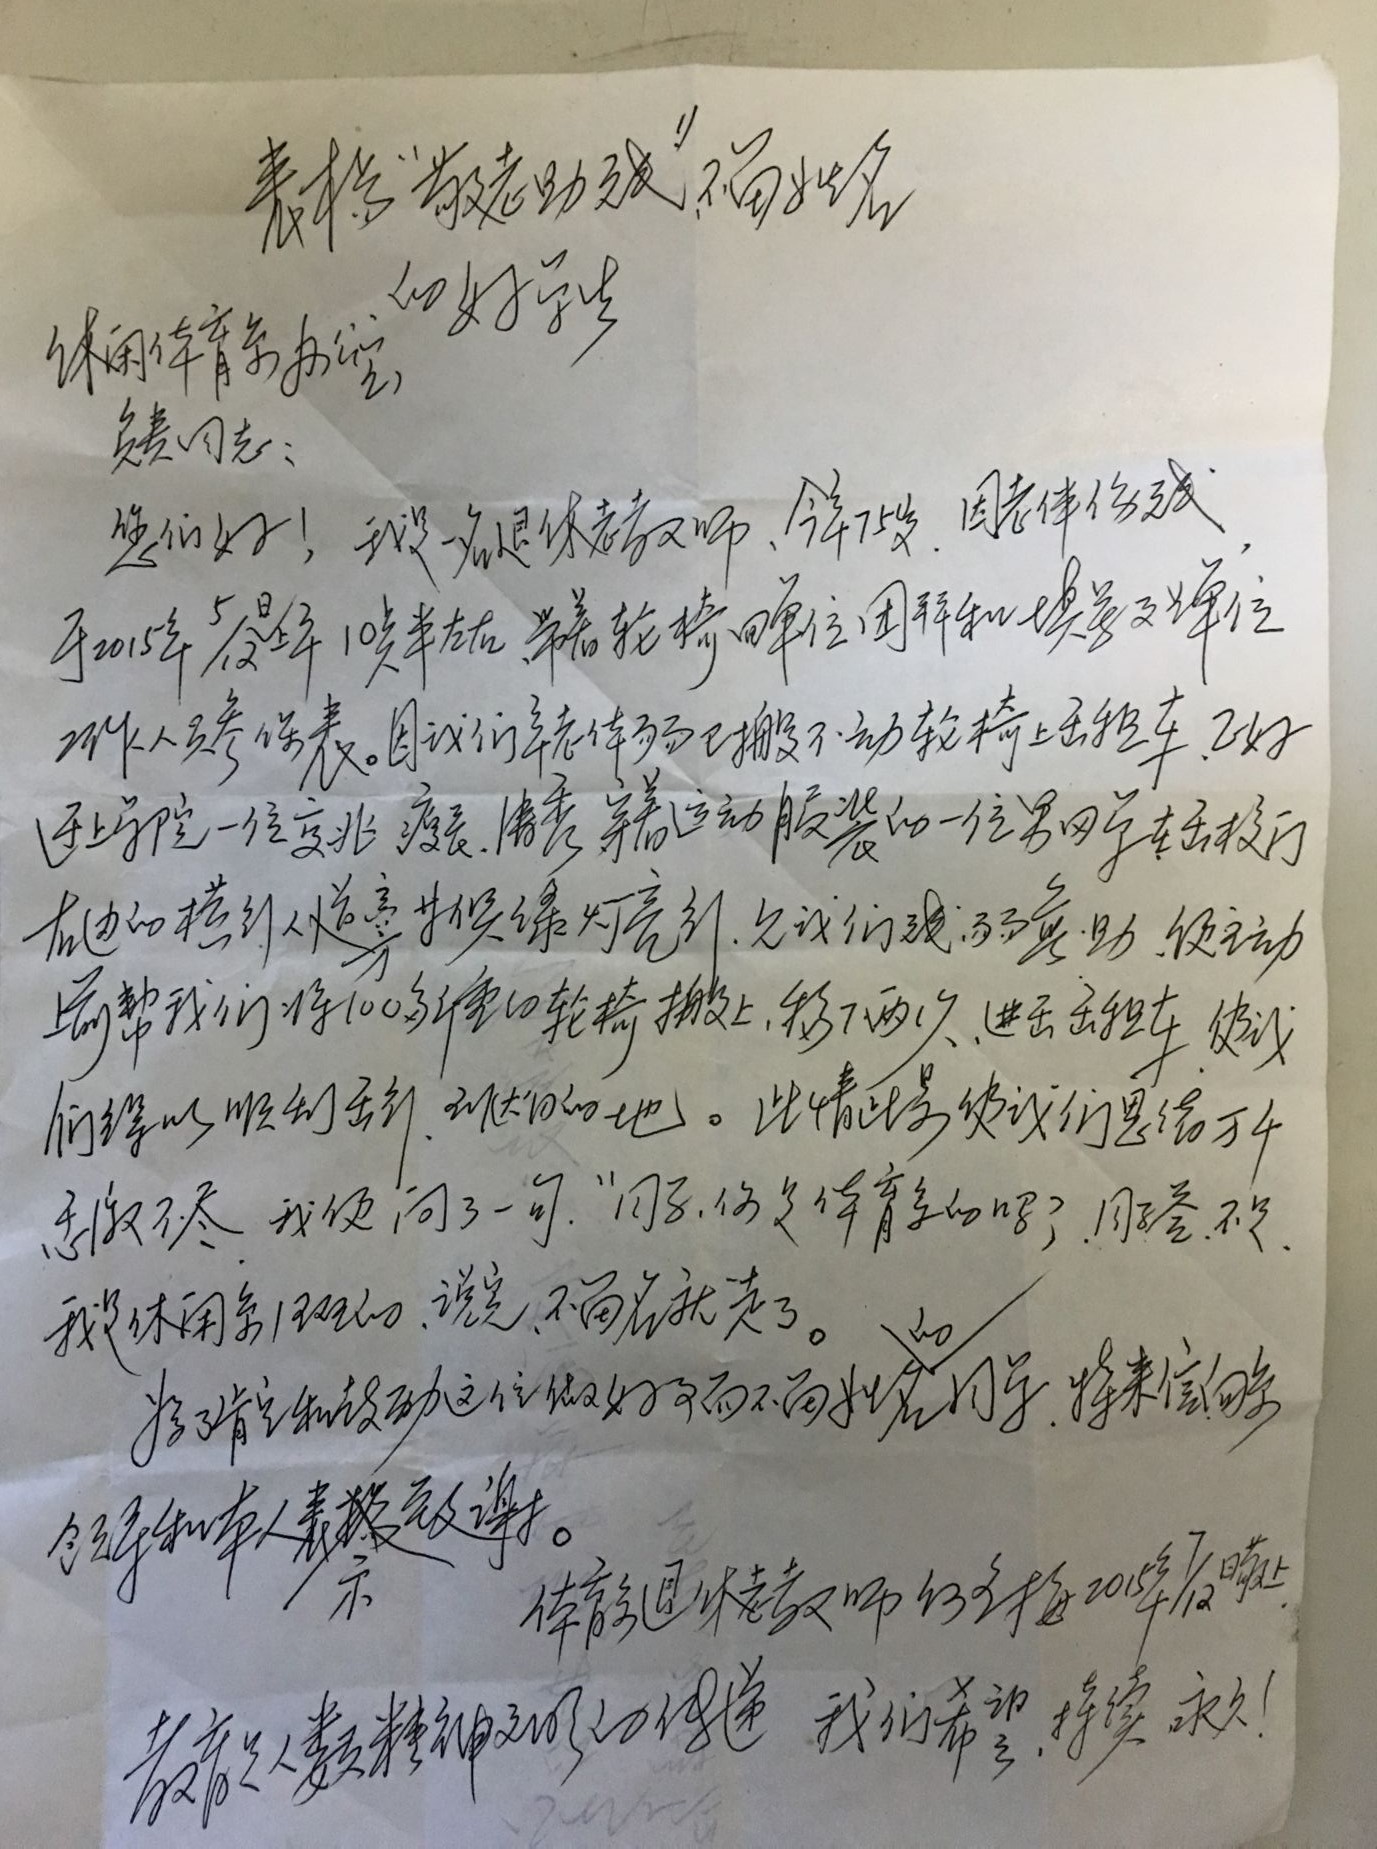 表扬“敬老助残”不留姓名
的好学生
休闲体育系办公室
负责同志：
您们好！我是一名退休老教师、今年75岁．因老伴伤残，
于2015年5/12日上午10点半左右、带着轮椅回单位团拜和填著交单位
工作人员参保表。因我们年老体弱已搬不动轮椅上出租车、正好
遇上学院一位 瘦长、清秀、穿着运动服装的一位男同学在出校门
右边的横行人道旁等候绿灯亮行、见我们残弱无助、便主动
上前帮我们将100多斤重的轮椅搬上、移下两次、进出出租车、使我
们得以顺利出行、到达目的地。此情此景使我们思绪万千
感激不尽、我便问了一句．“同学、你是体育系的吗？、同学答、不是、
我是休闲系1班的、说完、不留名就走了。
为了肯定和鼓励这位做好事而不留姓名的同学、特来信向系
领导和本人表示致谢。
体育系退休老教师 何冬梅2015年7/12日敬上．
教育是人类精神文明的传递 我们希望、持续 永久！